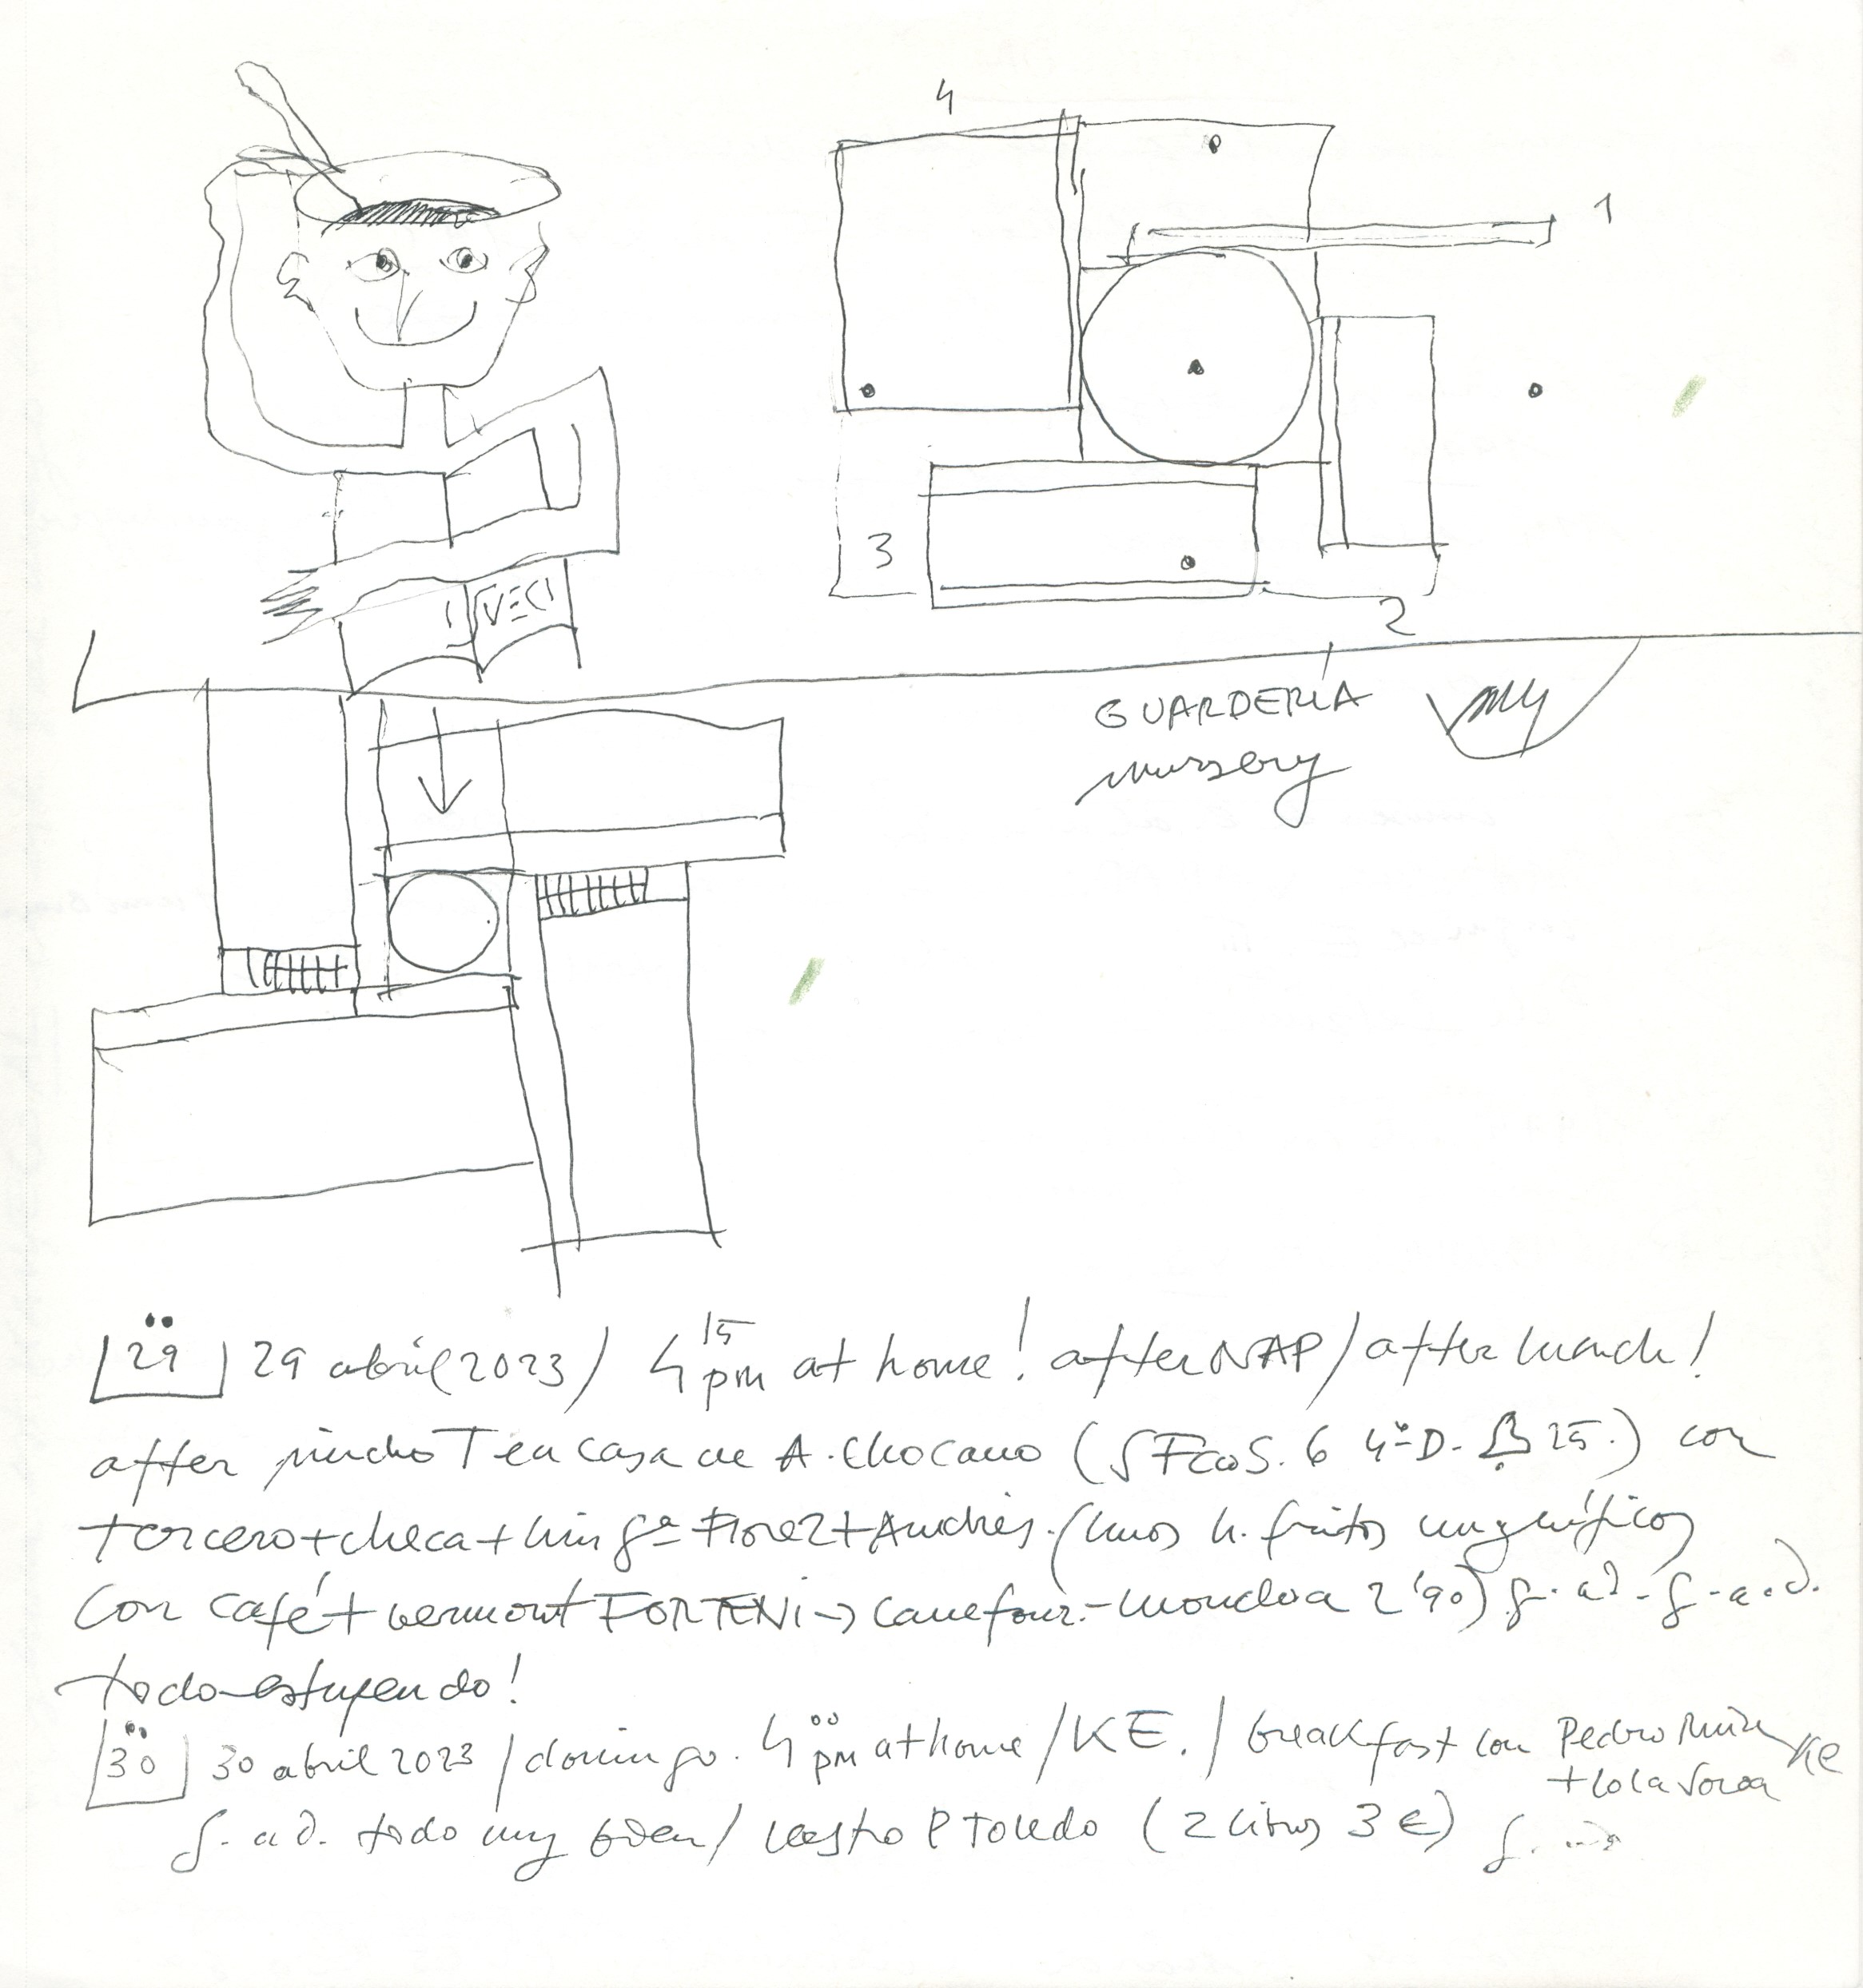 4
1
3
2
VECI
GUARDERÍA
nursery
29 29 abril (2023) / 4 15 pm at home! after NAP / after lunch!
after pincho T en casa de A. Chocano (Fco S. 6 4º D. 25.) con
tercero + checa + Andrés. (unos h. fritos magníficos
con café + vermout FORTENI → Carrefour - Moncloa 2'90) g. a d. - g. a. d.
todo estupendo!
30 30 abril 2023 / domingo. 4 00 pm at home / KE. / breakfast con Pedro Ruiz KE
+ Lola
g. a d. todo muy bien / P Toledo (2 libros 3 €) g.